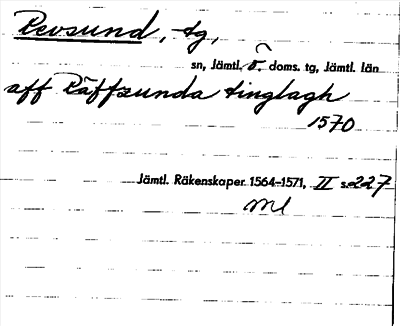 Revsund, tg,
sn, Jämtl. ö. doms. tg, Jämtl. län
aff Räffsunda tinglagh
1570
Jämtl. Räkenskaper 1564-1571, II s. 227